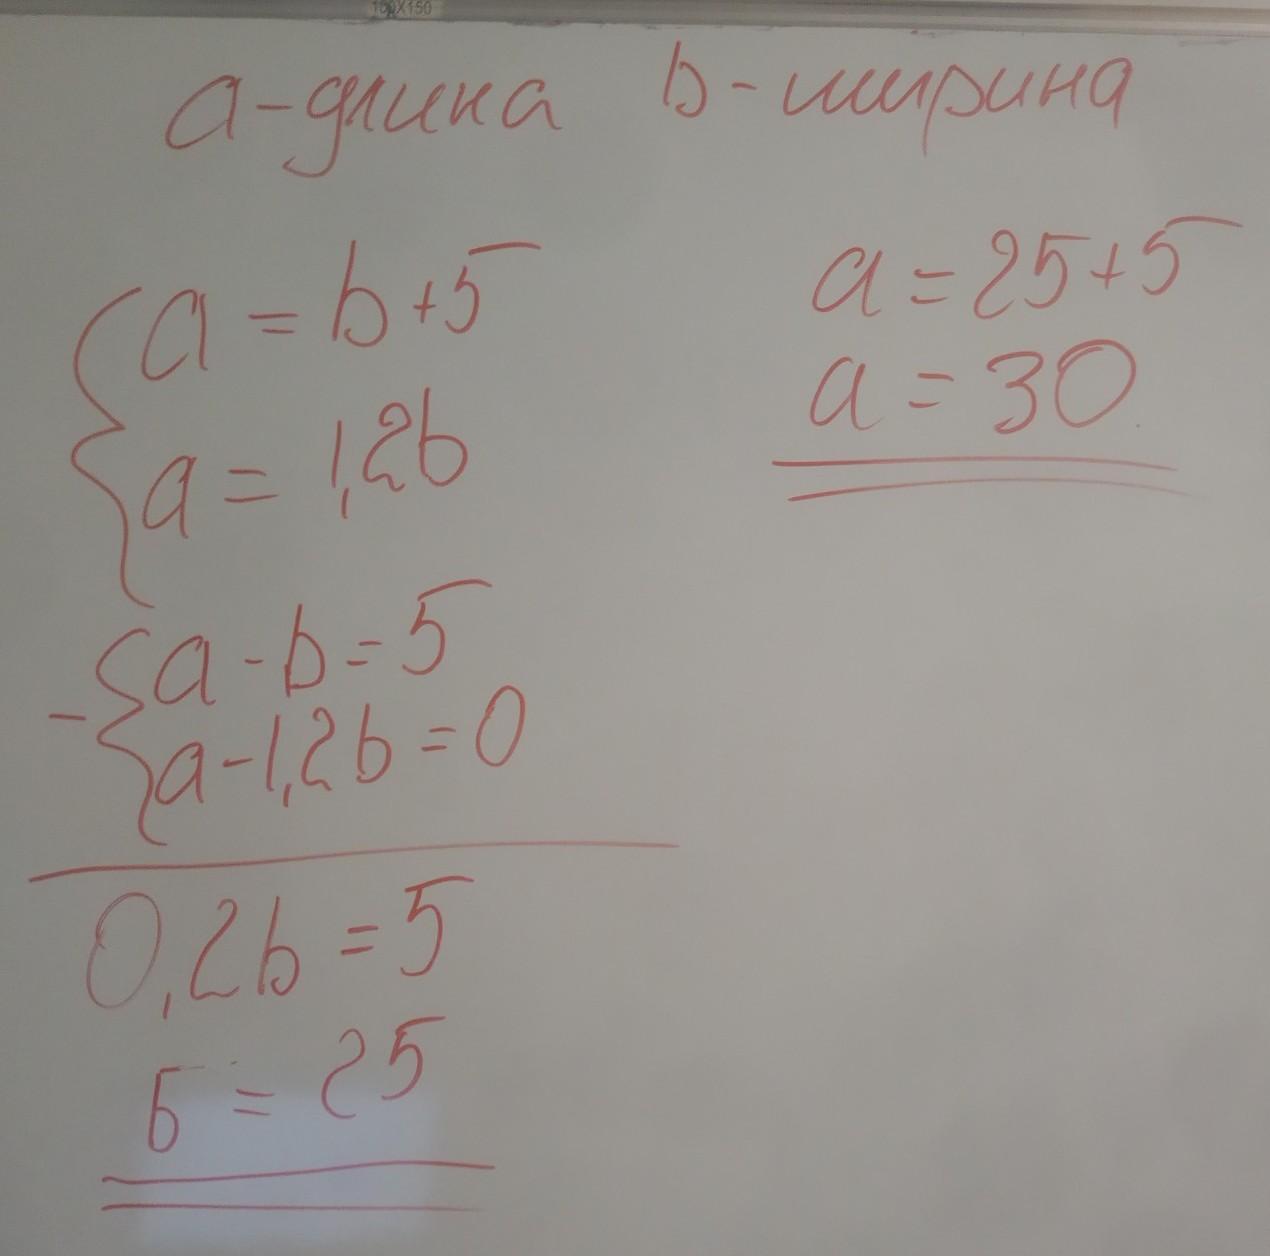 100X150
a - длина b - ширина
a = b + 5
a = 1,2b
a - b = 5
a - 1,2b = 0
0,2b = 5
b = 25
a = 25 + 5
a = 30